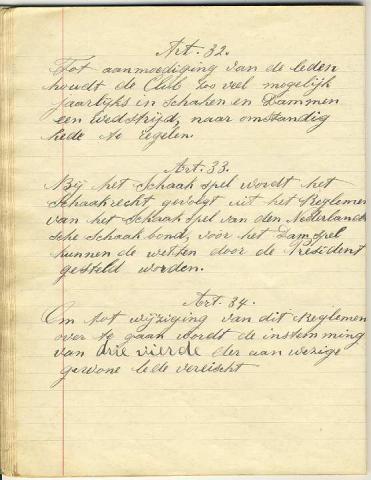 Art. 32.
Tot aanmoediging van de leden
houdt de Club zoo veel mogelijk
jaarlijks in Schaken en Dammen
een wedstrijd, naar omstandig
hede te regelen.
Art. 33.
Bij het Schaak spel wordt het
Schaakrecht, gevolgt uit het Reglemen
van het Schaak spel van den Nederland
sche Schaak bond, voor het Dam spel
kunnen de wetten door de President
gesteld worden.
Art. 34.
Om tot wijziging van dit Reglemen
over te gaan wordt de instemming
van drie vierde der aan wezige
gewone lede vereischt